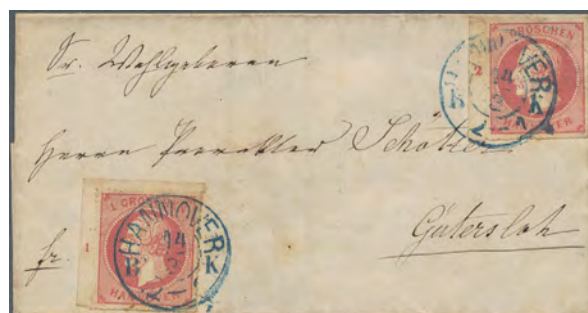 GROSCHEN
2
HANNOVER
14
B K
HANNOVER
Sr. Wohlgeboren
Herrn
Gütersloh
fr.
1 GROSCHEN
1
HANNOVER
14
B K
HANNOVER